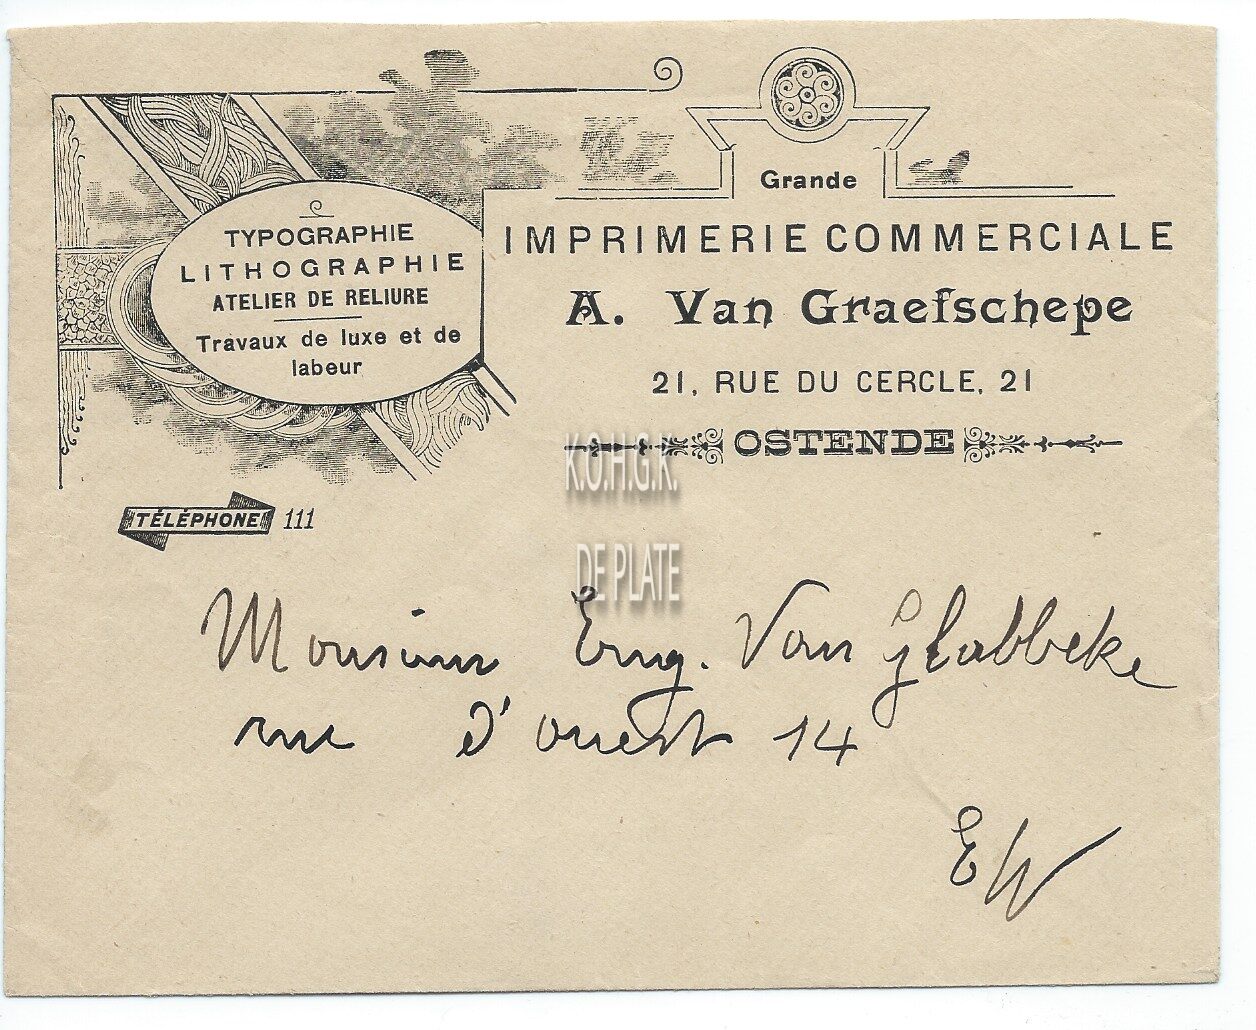 TYPOGRAPHIE
LITHOGRAPHIE
ATELIER DE RELIURE
Travaux de luxe et de
labeur
Grande
IMPRIMERIE COMMERCIALE
A. Van Graefschepe
21, RUE DU CERCLE, 21
OSTENDE
TÉLÉPHONE 111
K.O.H.G.K.
DE PLATE
Monsieur Eug. Van Glabbeke
rue d'ouest 14
EW